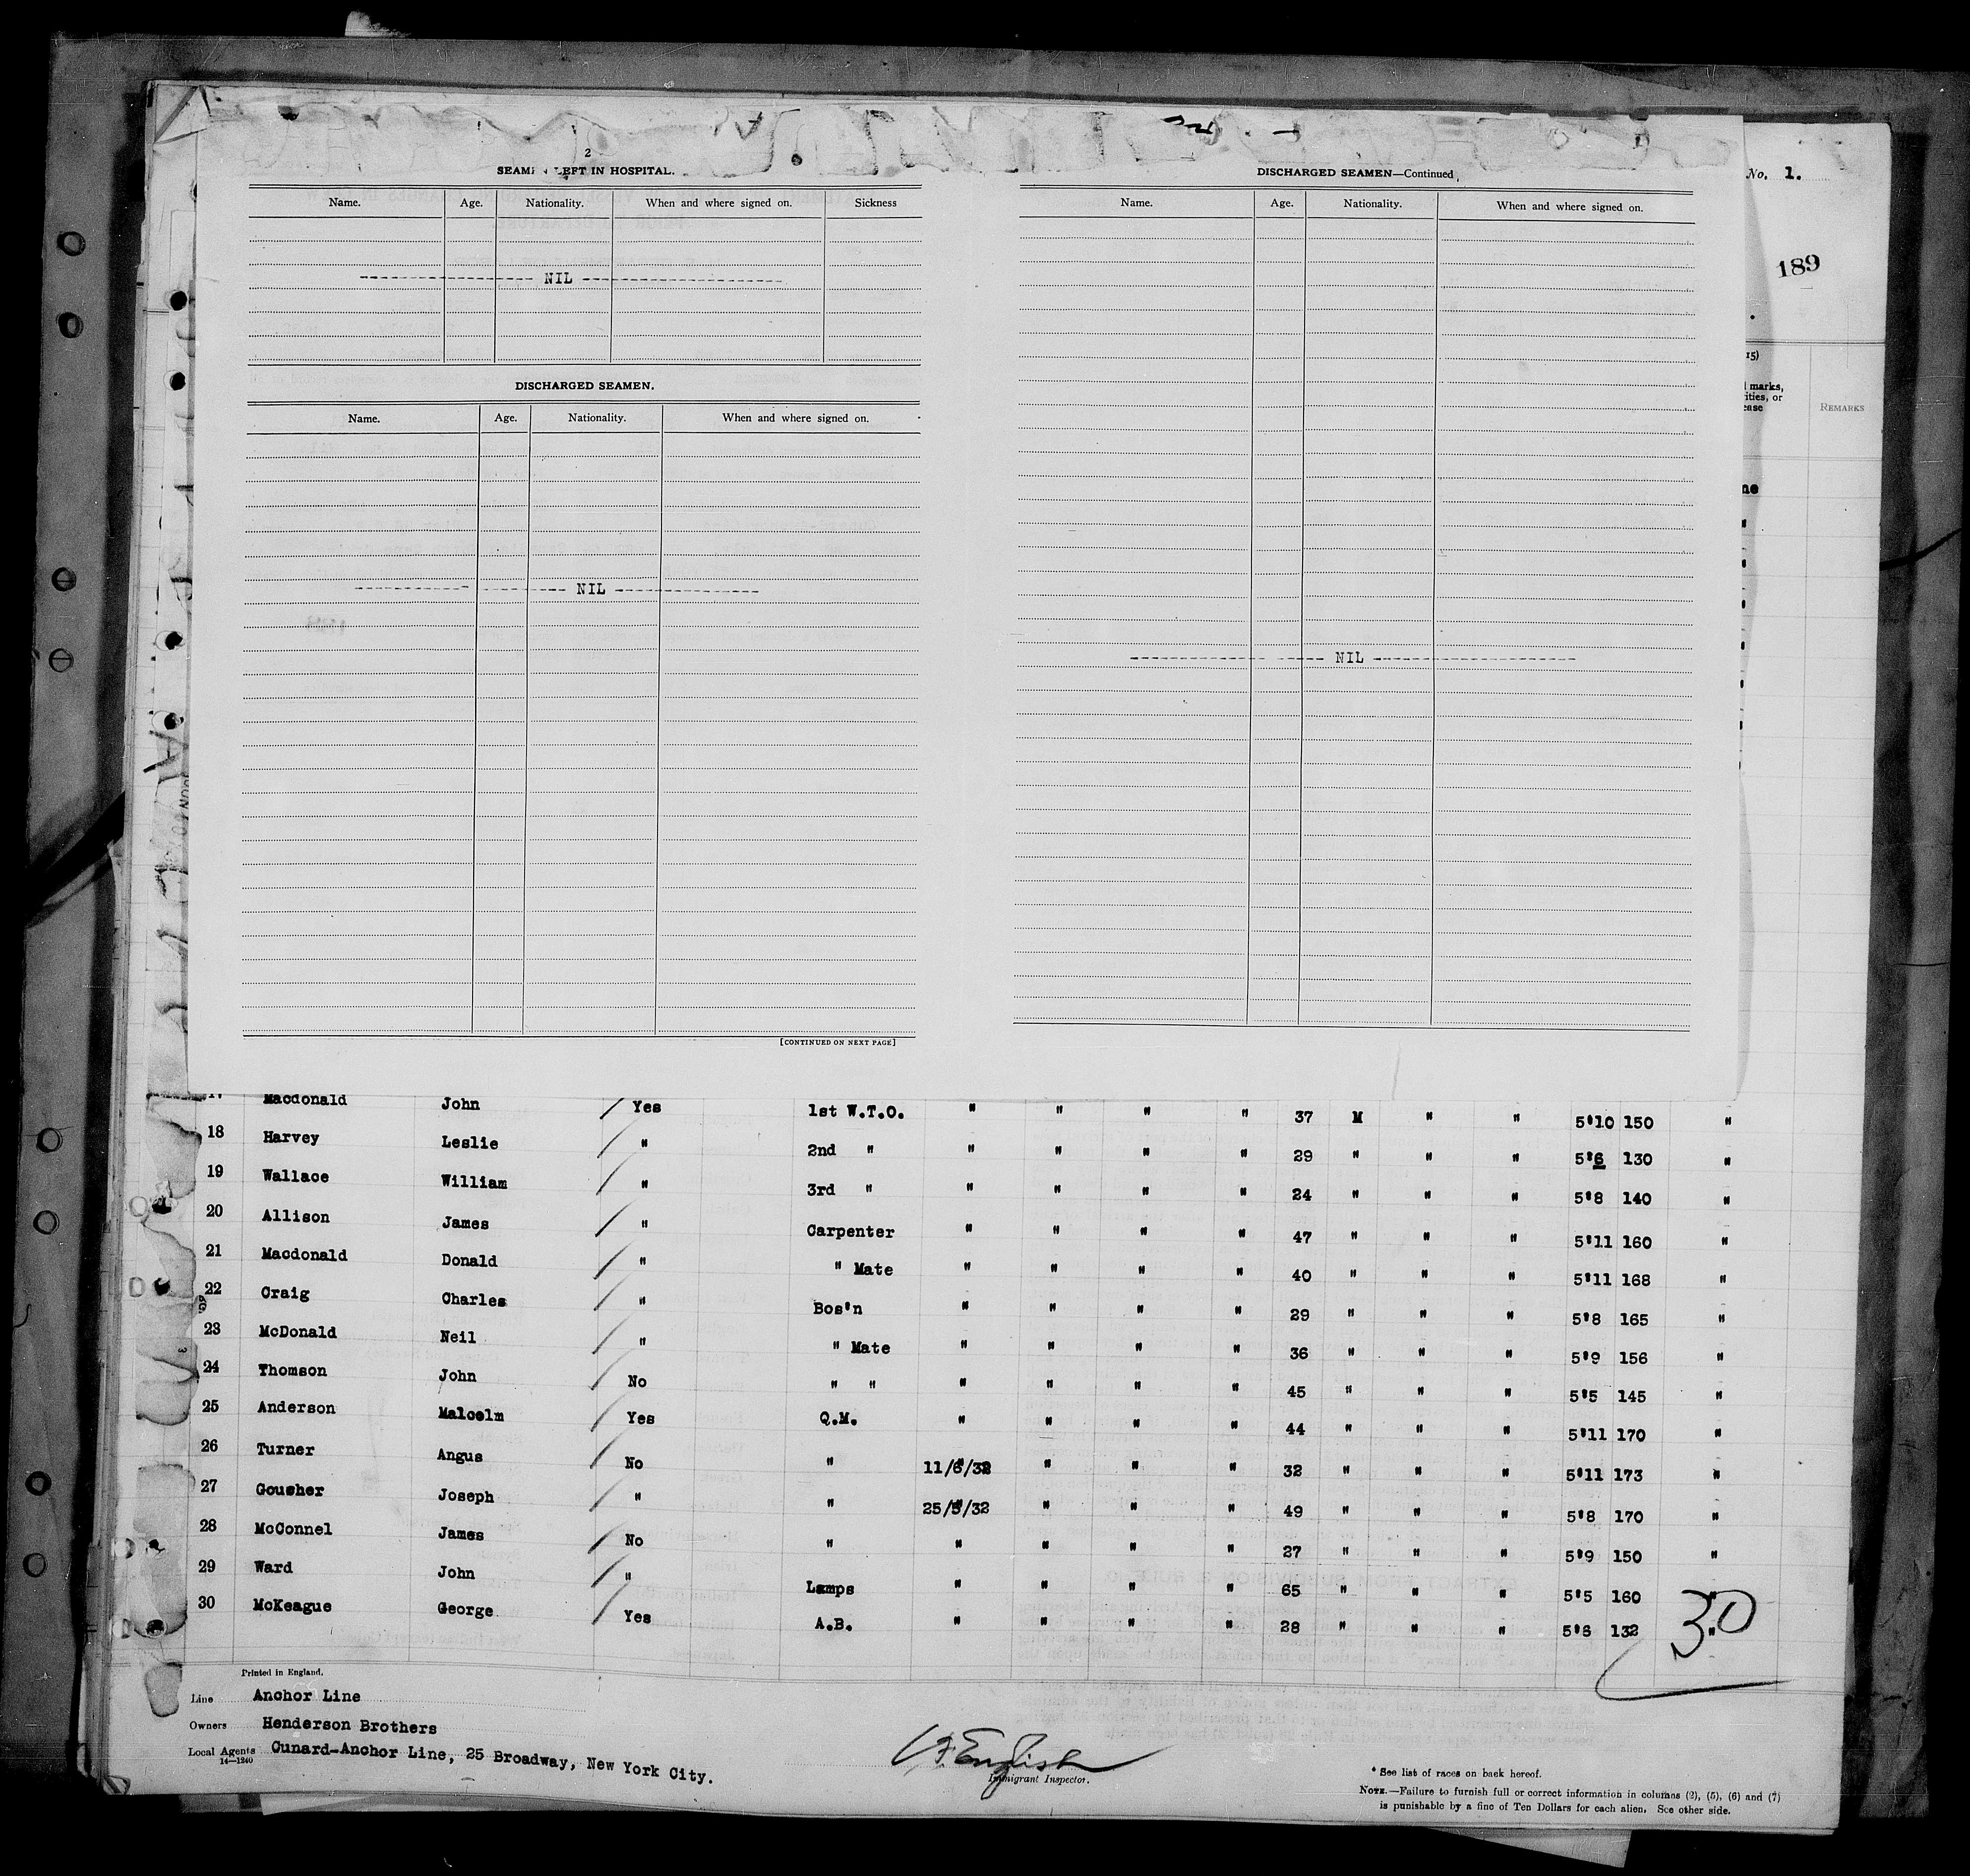 2
SEAM LEFT IN HOSPITAL.
Name. Age. Nationality. When and where signed on. Sickness
NIL
DISCHARGED SEAMEN.
Name. Age. Nationality. When and where signed on.
NIL
[CONTINUED ON NEXT PAGE]
DISCHARGED SEAMEN—Continued
Name. Age. Nationality. When and where signed on.
NIL
No. 1.
189
15)
marks,
ities, or
ease
REMARKS
ne
Macdonald John Yes 1st W.T.O. " " " " 37 M " " 5'10 150 "
18 Harvey Leslie " 2nd " " " " " 29 " " " 5'6 130 "
19 Wallace William " 3rd " " " " " 24 " " " 5'8 140 "
20 Allison James " Carpenter " " " " 47 " " " 5'11 160 "
21 Macdonald Donald " " Mate " " " " 40 " " " 5'11 168 "
22 Craig Charles " Bos'n " " " " 29 " " " 5'8 165 "
23 McDonald Neil " " Mate " " " " 36 " " " 5'9 156 "
24 Thomson John No " " " " " " 45 " " " 5'5 145 "
25 Anderson Malcolm Yes Q.M. " " " " 44 " " " 5'11 170 "
26 Turner Angus No " 11/6/32 " " " 32 " " " 5'11 173 "
27 Gousher Joseph " " 25/5/32 " " " 49 " " " 5'8 170 "
28 McConnel James No " " " " " 27 " " " 5'9 150 "
29 Ward John " Lamps " " " " 65 " " " 5'5 160 "
30 McKeague George Yes A.B. " " " " 28 " " " 5'6 132 "
30
Printed in England.
Line Anchor Line
Owners Henderson Brothers
Local Agents Cunard-Anchor Line, 25 Broadway, New York City.
14—1240
English
Immigrant Inspector.
* See list of races on back hereof.
NOTE.—Failure to furnish full or correct information in columns (2), (5), (6) and (7)
is punishable by a fine of Ten Dollars for each alien. See other side.